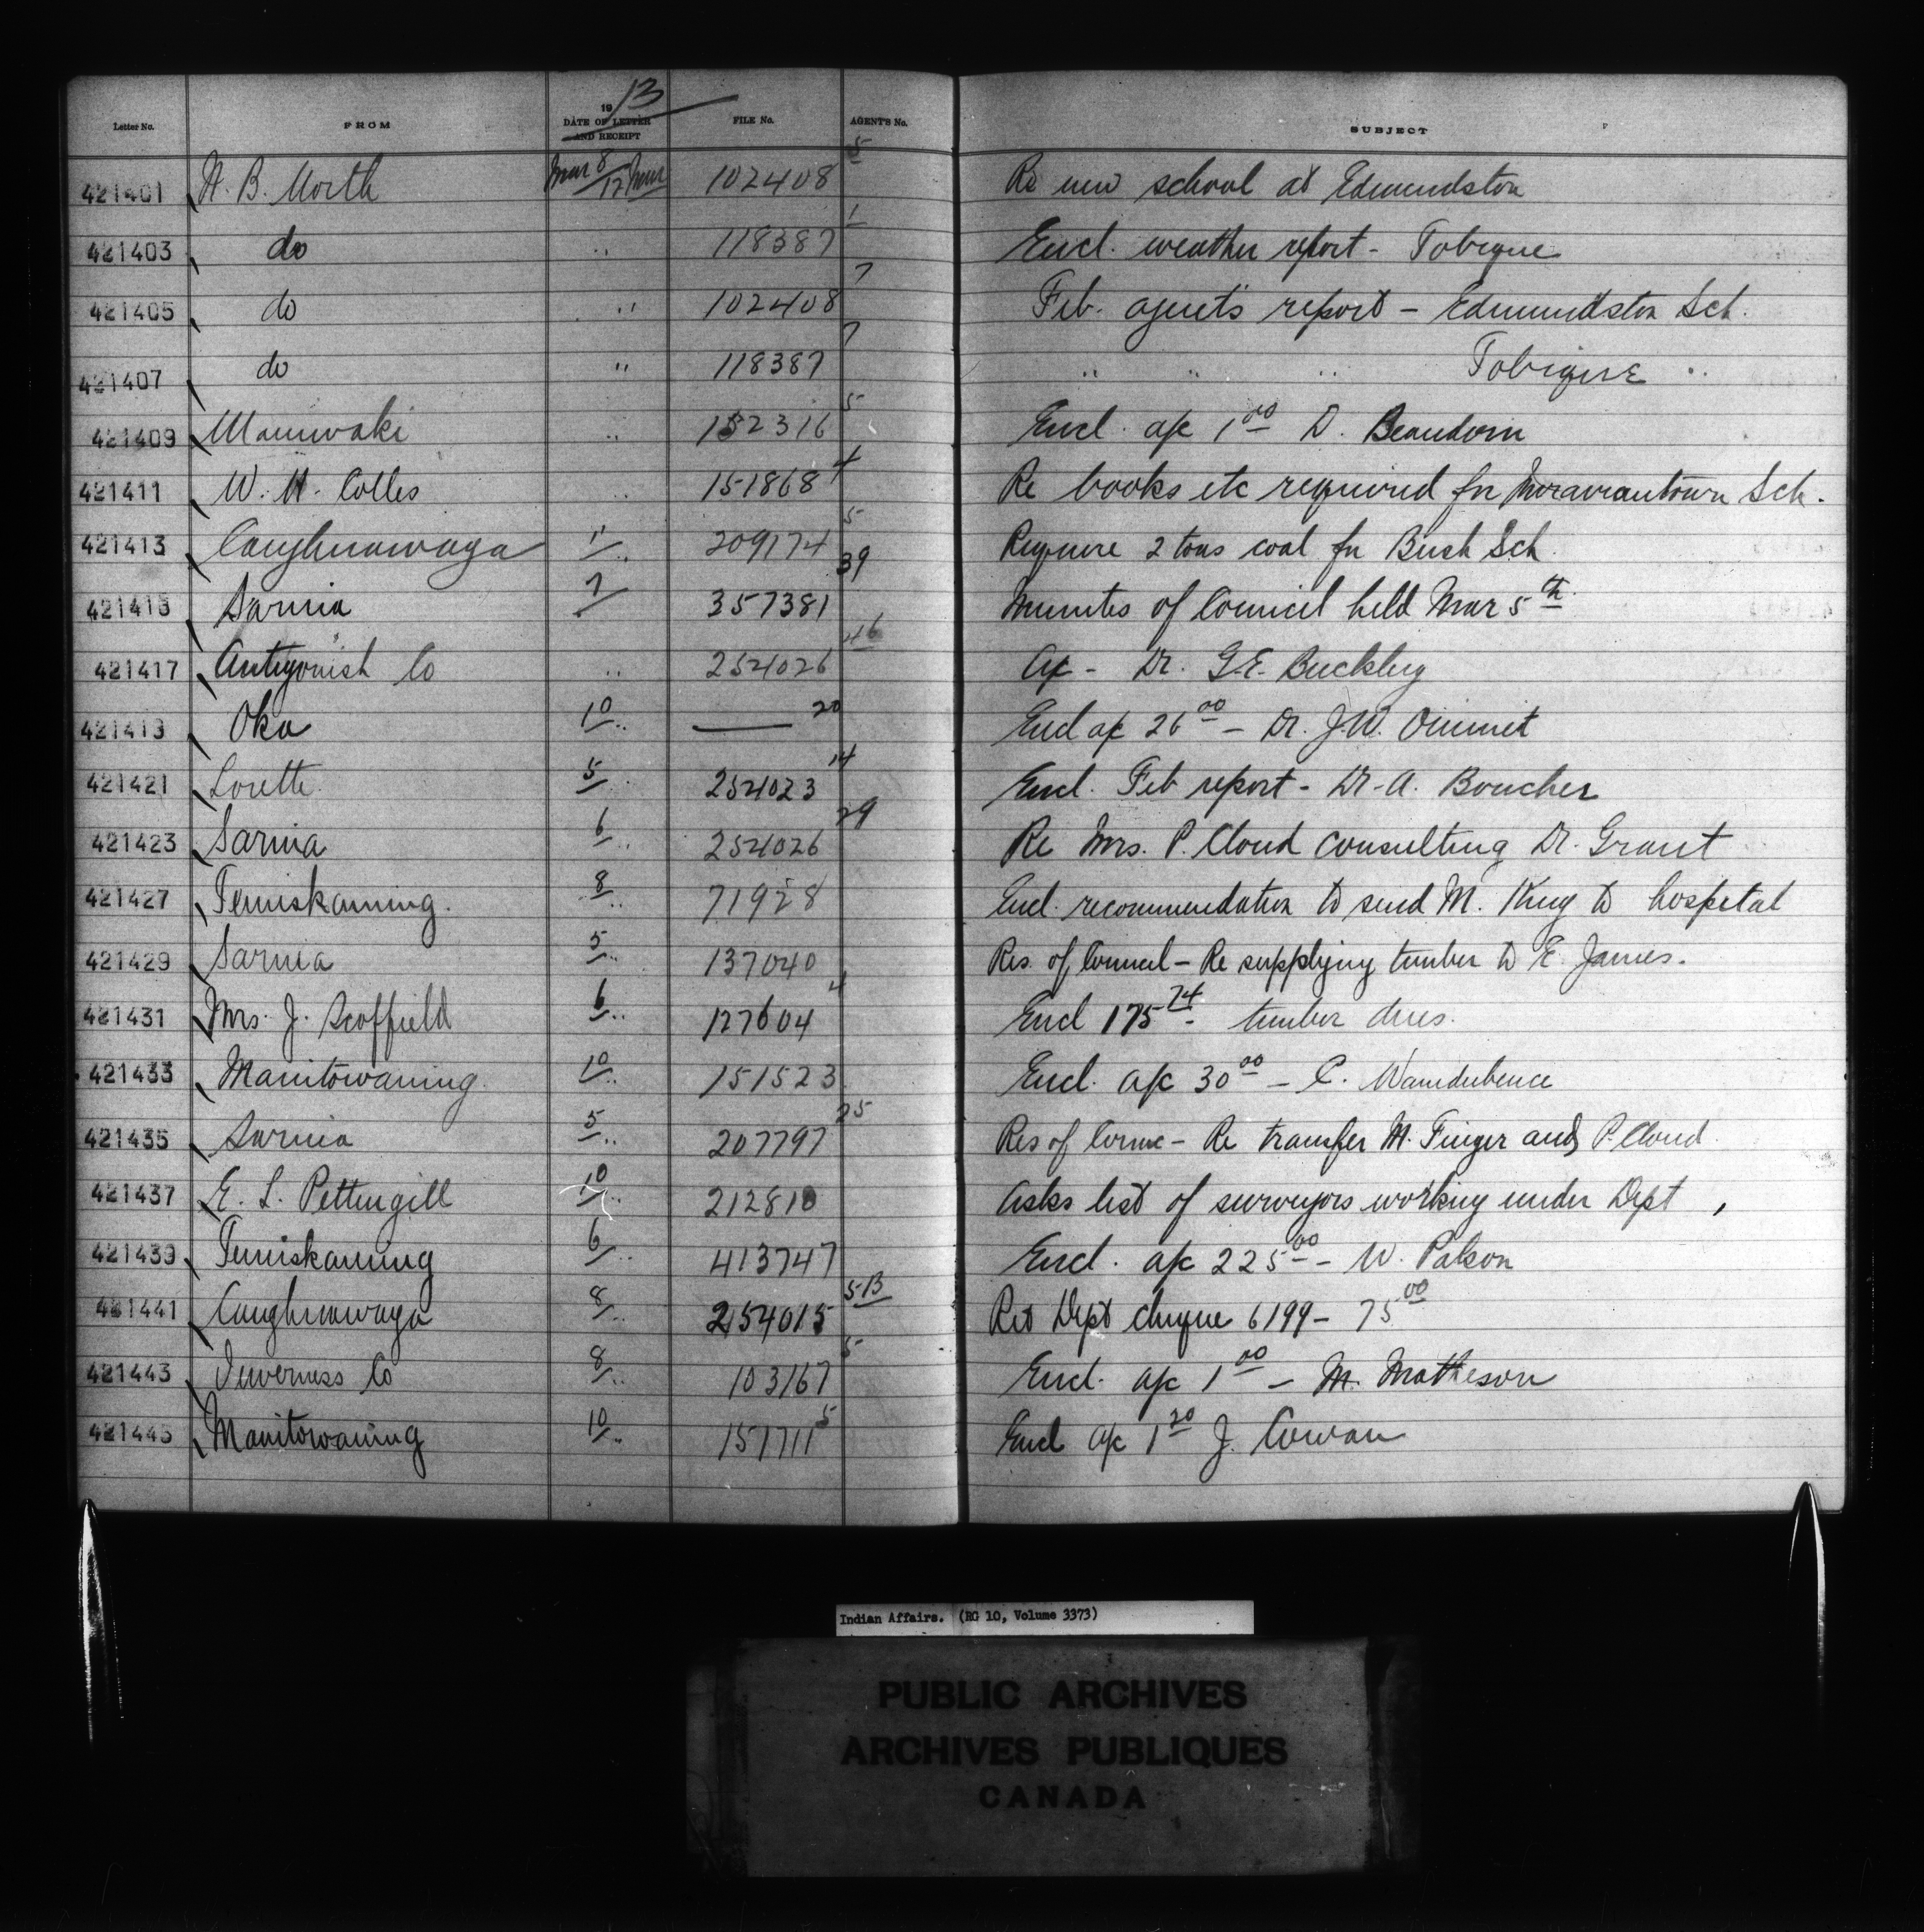 Letter No. FROM 19 13 DATE OF LETTER AND RECEIPT FILE No. AGENT'S No. SUBJECT
421401 H. B. North Mar 8/12 Mar 102408 5 Re new school at Edmundston
421403 do " 118387 1 Encl. weather report - Tobique
421405 do " 102408 7 Feb. agent's report - Edmundston Sch.
421407 do " 118387 7 " " " Tobique "
421409 Maniwaki " 152316 5 Encl. a/c 1 00 D. Beaudoin
421411 W. H. Colles " 151868 4 Re books etc required for Moraviantown Sch.
421413 Caughnawaga 11 " 209174 5 Require 2 tons coal for Bush Sch
421415 Sarnia 7 357381 39 Minutes of Council held Mar 5th
421417 Antigonish Co " 254026 46 a/c - Dr. G.E. Buckley
421419 Oka 10 " — 20 Encl a/c 26 00 - Dr. J.W. Ouimet
421421 Lorette 5 " 254023 14 Encl. Feb report - Dr. A. Boucher
421423 Sarnia 6 " 254026 29 Re Mrs. P. Cloud consulting Dr. Grant
421427 Temiskaming. 8 " 71928 Encl. recommendation to send M. King to hospital
421429 Sarnia 5 " 137040 Res. of Council - Re supplying timber to E. James.
421431 Mrs. J. Scoffield 6 " 127604 4 Encl 175 74 - timber dues.
421433 Manitowaning 10 " 151523 Encl. a/c 30 00 - C.
421435 Sarnia 5 " 207797 25 Res of Counc - Re transfer M. Finger and P. Cloud.
421437 E. L. Pettengill 10 " 212810 Asks list of surveyors working under Dept
421439 Temiskaming 6 " 413747 Encl. a/c 225 00 - W. Polson
421441 Caughnawaga 8 " 254015 5-13 Ret Dept cheque 6199 - 75 00
421443 Inverness Co 8 " 103167 5 Encl. a/c 1 00 - M. Matheson
421445 Manitowaning 10 " 151711 5 Encl a/c 1 20 J. Cowan
Indian Affairs. (RG 10, Volume 3373)
PUBLIC ARCHIVES
ARCHIVES PUBLIQUES
CANADA